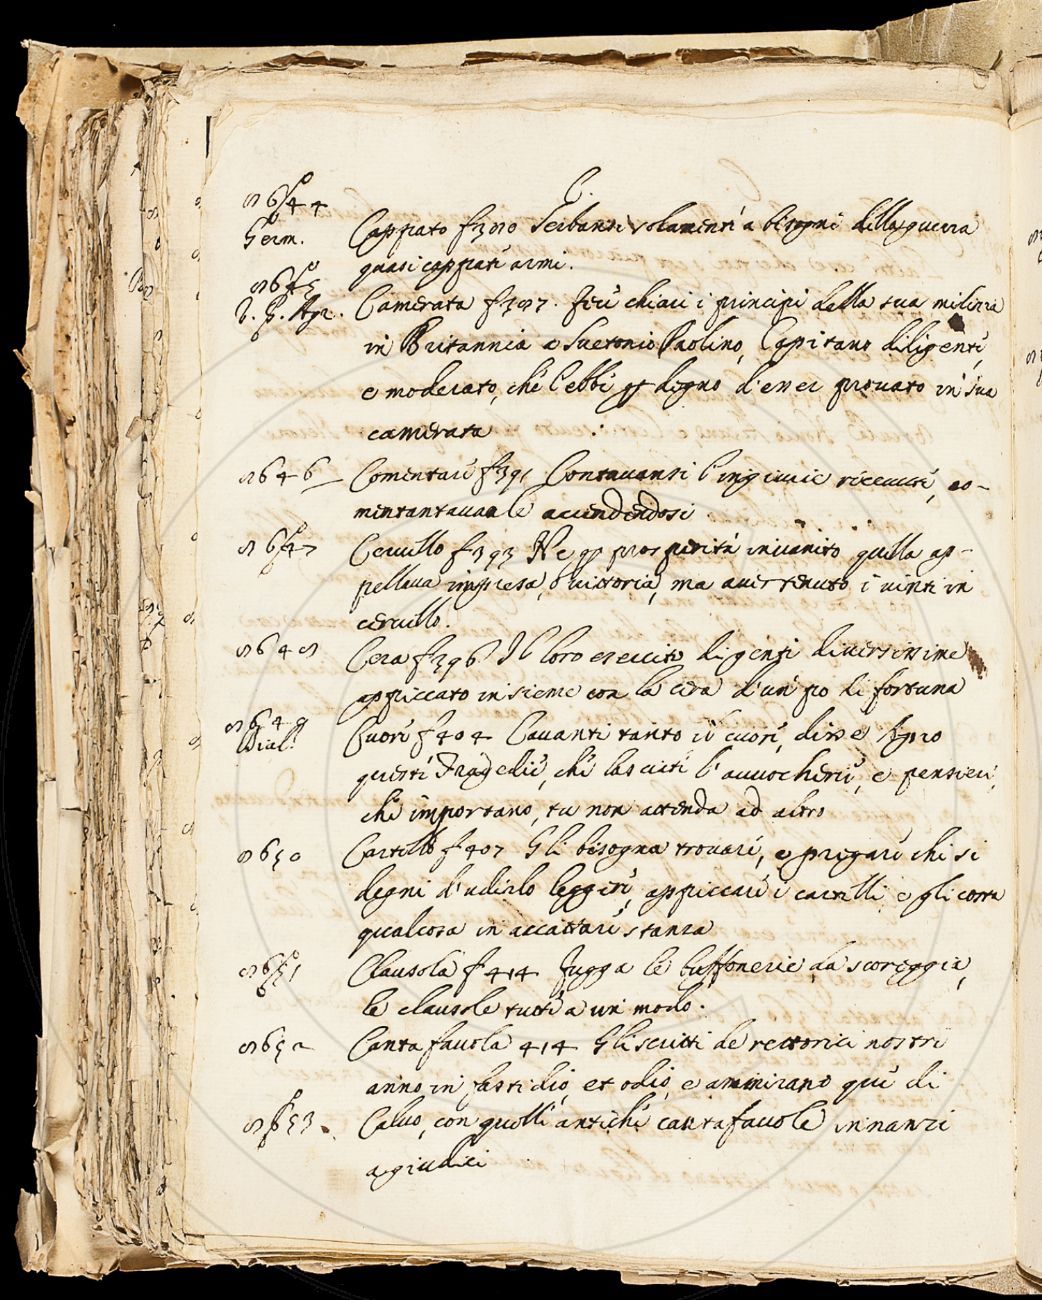 C.
8644
Germ. Cappiato f 380 Serbansi solamenti a bisogni della guerra
quasi cappiati armi.
8645
V. G. Agr. Camerata f 387. Feci chiari i principi della sua milizia
in Britannia a Suetonio Paolino, Capitano diligenti,
e moderato, che l'ebbi per degno d'esser provato in sua
camerata
8646 Comentari f 391 Contavansi l'ingiurie ricevuti, co-
mentantavanle accendendosi
8647 Cervello f 393 Ne per prosperità invanito quella ap-
pellava impresa, o vittoria, ma aver tenuto i vinti in
cervello.
8648 Cera f 396 Il loro esercito di genti diversissime
appiccato insieme con la cera d'un po di fortuna
8649
Dial. Cuori f 404 Cavanti tanto il cuori, disse Apro
questi Tragedie, che lasciati l'avvocherie, e pensieri,
che importano, tu non attenda ad altro
8650 Cartello f 407 Gli bisogna trovari, e pregari chi si
degni d'udirlo leggeri, appiccari i cartelli, e gli costa
qualcosa in accattari stanza
8651 Clausola f 414 Fugga le buffonerie da scoreggia,
le clausole tutti a un modo.
8652 Cantafavola 414 Gli scritti de rettorici nostri
anno in fastidio, et odio, e ammirano que di
8653. Calvo, con quelli antichi cantafavole innanzi
a giudici